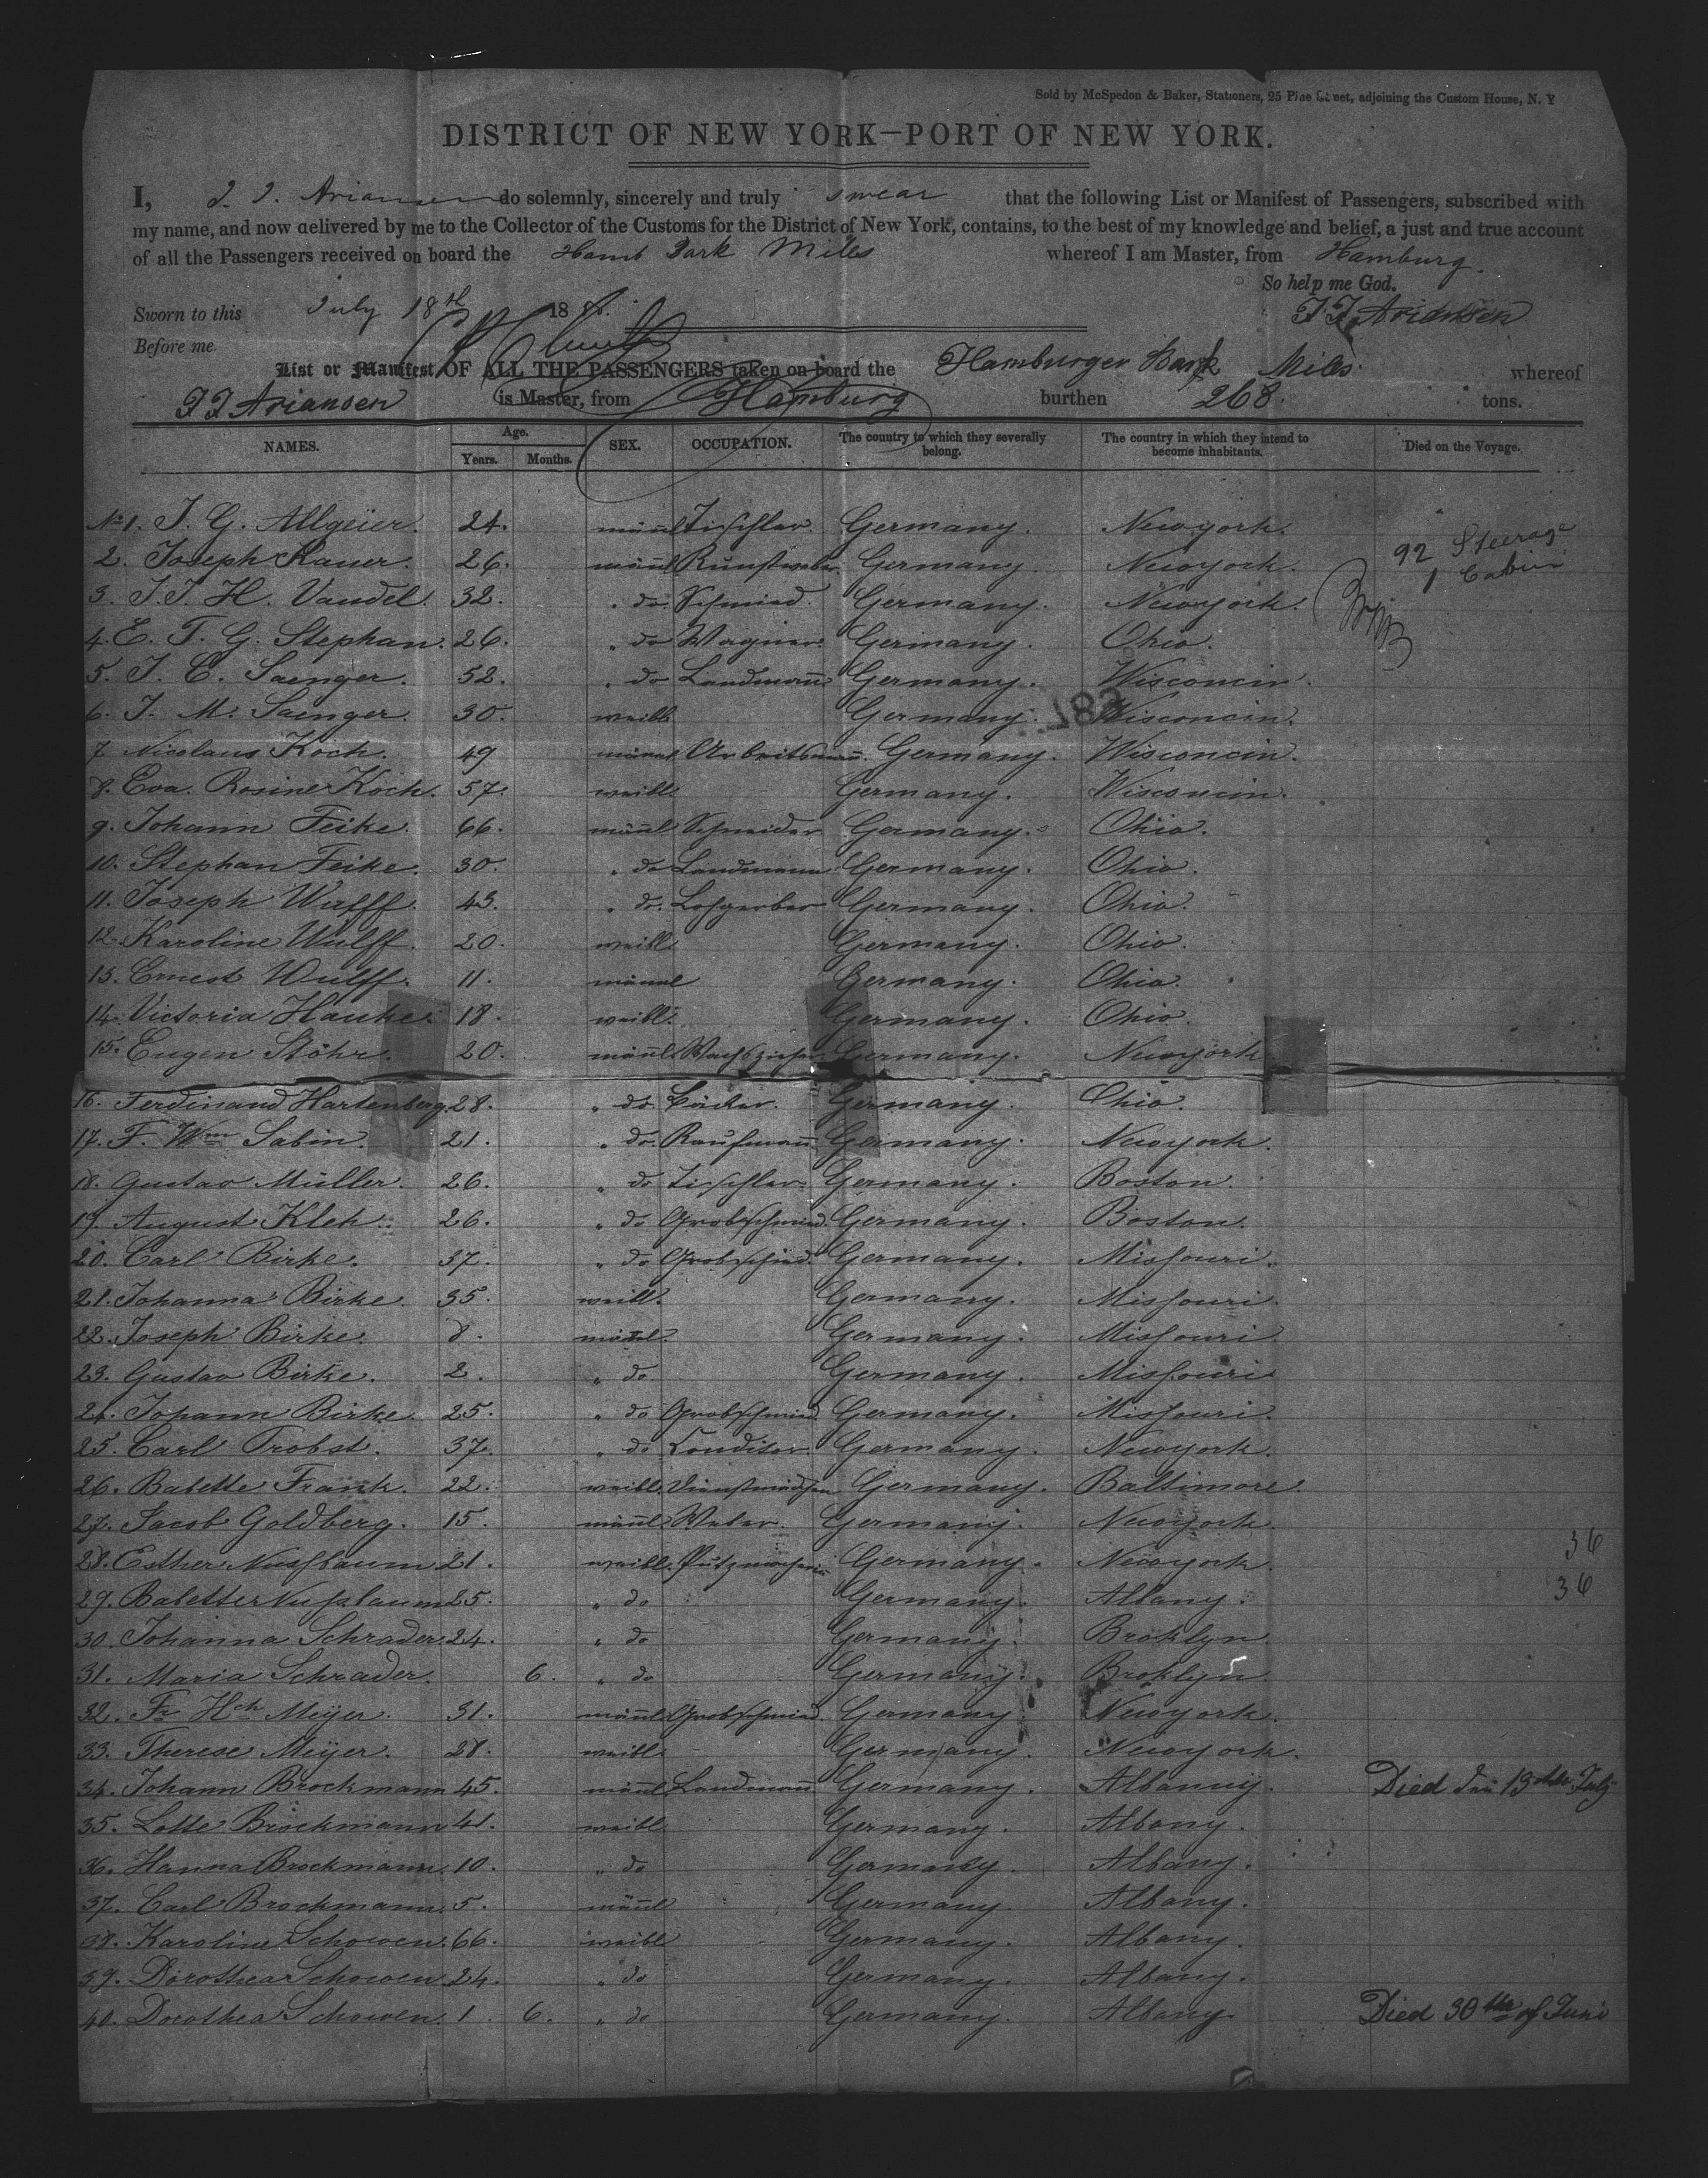 Sold by McSpedon & Baker, Stationers, 25 Pine Street, adjoining the Custom House, N. Y
DISTRICT OF NEW YORK—PORT OF NEW YORK.
I, J. J. Ariansen do solemnly, sincerely and truly swear that the following List or Manifest of Passengers, subscribed with
my name, and now delivered by me to the Collector of the Customs for the District of New York, contains, to the best of my knowledge and belief, a just and true account
of all the Passengers received on board the Hamb Bark Miles whereof I am Master, from Hamburg.
So help me God.
Sworn to this July 18th 18
J J Ariansen
Before me.
List or Manifest OF ALL THE PASSENGERS taken on board the Hamburger Bark Miles whereof
J J Ariansen is Master, from Hamburg burthen 268 tons.
NAMES. Age. Years. Months. SEX. OCCUPATION. The country to which they severally belong. The country in which they intend to become inhabitants. Died on the Voyage.
No 1. J. G. Allgeier. 24. männl Tischler. Germany. Newyork.
92 Steerage
1 Cabin
2. Joseph Hauer. 26. männl Germany. Newyork.
3. J. J. H. Vaudel. 32. " do Schmied. Germany. Newyork.
4. E. T. G. Stephan. 26. " do Wagner. Germany. Ohio.
5. J. C. Saenger. 52. " do Landmann Germany. Wisconcin.
6. J. M. Saenger. 30. weibl. Germany. Wisconcin.
7. Nicolaus Koch. 49 männl Arbeitsmann. Germany. Wisconcin.
8. Eva. Rosine Koch. 57. weibl. Germany. Wisconcin.
9. Johann Feike. 66. männl Schneider Germany. Ohio.
10. Stephan Feike. 30. " do Landmann Germany. Ohio.
11. Joseph Wulff. 43. " do. Lohgerber Germany. Ohio.
12. Karoline Wulff. 20. weibl. Germany. Ohio.
13. Ernest Wulff. 11. männl Germany. Ohio.
14. Victoria Hauke. 18. weibl. Germany. Ohio.
15. Eugen Stöhr. 20. männl Wachszieher Germany. Newyork
16. Ferdinand Hartenberg. 28. " do Bäcker. Germany. Ohio.
17. F. Wm Sabin. 21. " do. Kaufmann Germany. Newyork.
18. Gustav Müller. 26. " do Tischler. Germany. Boston.
19. August Kleh. 26. " do Grobschmied. Germany. Boston.
20. Carl Birke. 37. " do Grobschmied. Germany. Missouri.
21. Johanna Birke. 35. weibl. Germany. Missouri.
22. Joseph Birke. 8. männl. Germany. Missouri.
23. Gustav Birke. 2. " do Germany. Missouri
24. Johann Birke. 25. " do Grobschmied Germany. Missouri.
25. Carl Probst. 37. " do Conditor. Germany. Newyork.
26. Babette Frank. 22. weibl. Dienstmädchen Germany. Baltimore.
27. Jacob Goldberg. 15. männl Weber. Germany. Newyork.
28. Esther Nussbaum 21. weibl. Putzmacherin Germany. Newyork. 36
29. Babette Nussbaum 25. " do Germany. Albany. 36
30. Johanna Schrader. 24. " do Germany. Broklyn.
31. Maria Schrader. 6. " do Germany. Broklyn.
32. Fr Hch Meÿer. 31. männl Grobschmied. Germany. Newyork.
33. Therese Meÿer. 28. weibl. Germany. Newyork.
34. Johann Brockmann 45. männl Landmann Germany. Albanny. Died 13 July
35. Lotte Brockmann 41. weibl Germany. Albany.
36. Hanna Brockmann. 10. " do Germany. Albany.
37. Carl Brockmann. 5. männl Germany. Albany.
38. Karoline Schowen. 66. weibl Germany. Albany.
39. Dorothea Schowen 24. " do Germany. Albany.
40. Dorothea Schowen. 1. 6. " do Germany. Albany. Died 30th of Juni